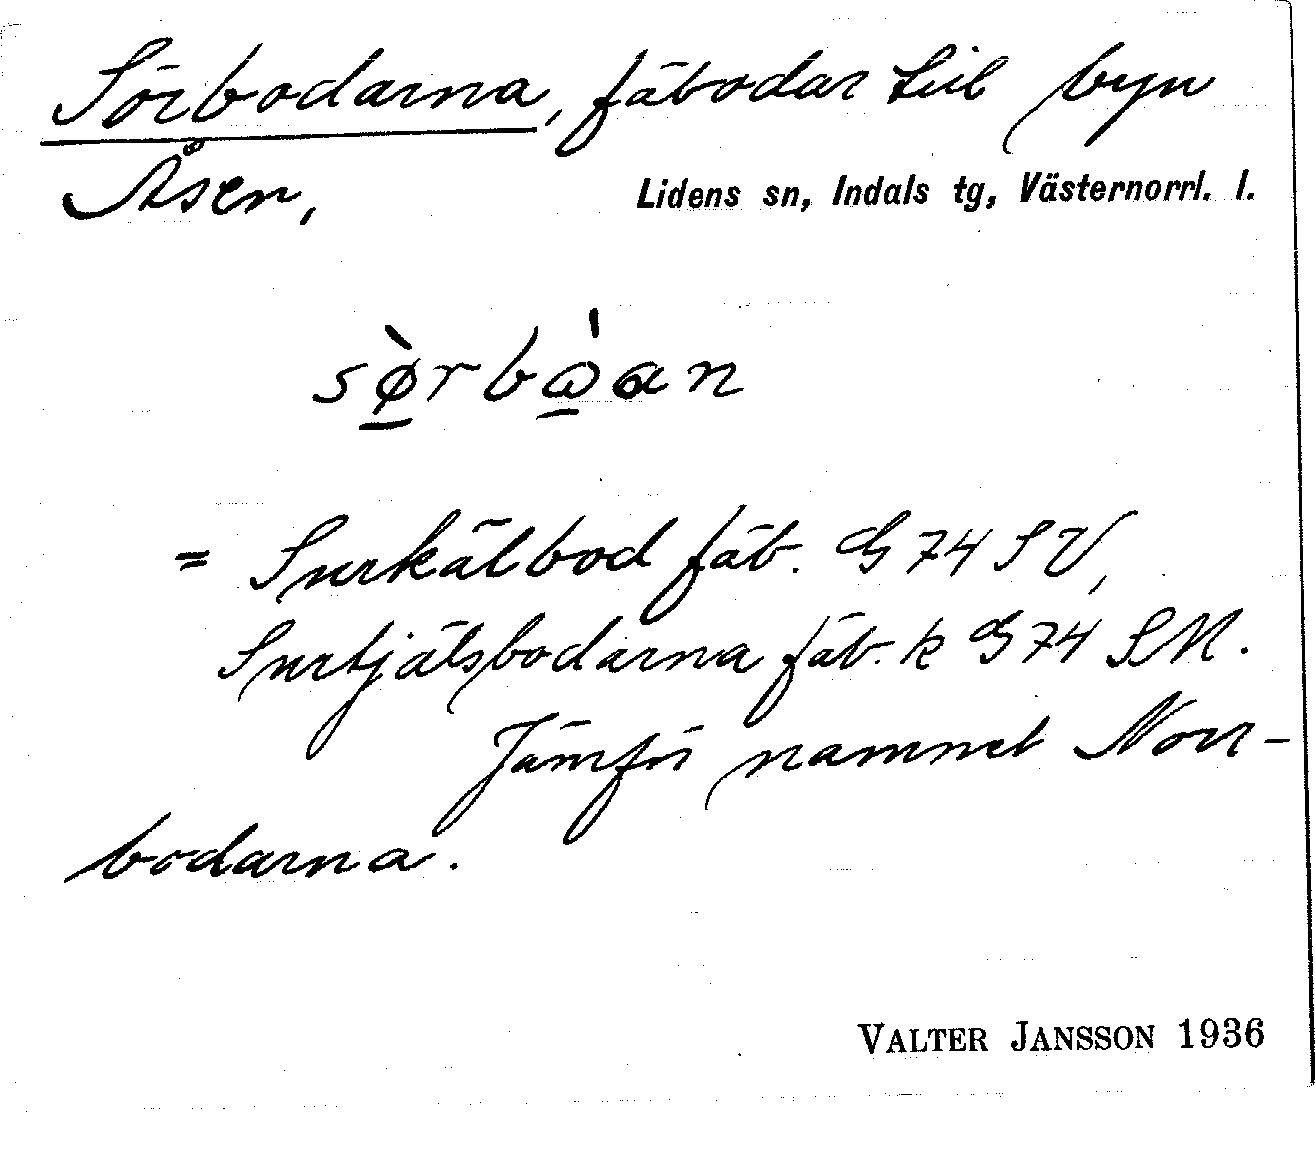 Sörbodarna, fäbodar till byn
Åsen,
Lidens sn, Indals tg, Västernorrl. l.
sø̱̀rbὼ̱an
= Surkälbod fäb. G 74 SV,
Surtjälsbodarna fäb. k G 74 SM.
Jämför namnet Norr-
bodarna.
VALTER JANSSON 1936